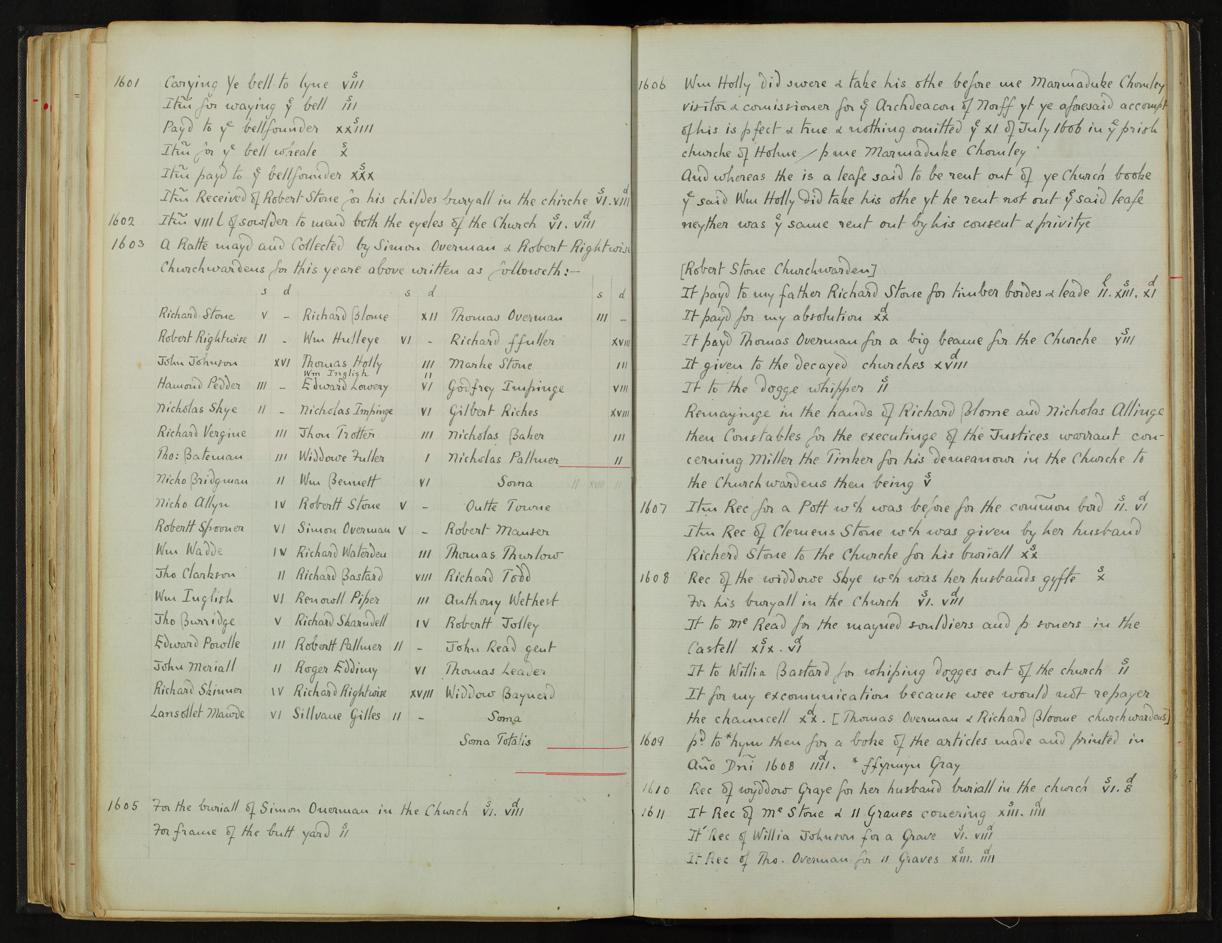 1601 Carying Ye bell to lyne viii s
Itm̃ for waying ye bell iii s
Payd to ye bellfounder xxiiii s
Itm̃ for ye bell wheale x s
Itm̃ payd to ye bellfounder xxx s
Itm̃ Received of Robert Stone for his childes buryall in the chirche vi s. viii d
1602 Itm̃ viii l of sowlder to mend both the eyeles of the Church vi s. viii d
1603 A Ratte mayd and Collected by Simon Overman & Robert Rightwise
Churchwardens for this yeare above written as followeth:-
s d s d s d
Richard Stone v - Richard Blome xii Thomas Overman iii -
Robert Rightwise ii - Wm Hulleye vi - Richard ffuller xviii
John Johnson xvi Thomas Holly iii Marke Stone iii
Wm Inglish ii
Hamond Pedder iii - Edward Lowery vi Godfrey Impinge viii
Nicholas Skye ii - Nicholas Impinge vi Gilbert Riches xviii
Richard Vergine iii Jhon Trotter iii Nicholas Baker iii
Tho: Bateman iii Widdowe Fuller i Nicholas Pallmer ii
Nicho Bridgman ii Wm Bennett vi Soma ii xviii ii
Nicho Allyn iv Robertt Stone v - Outte Towne
Robertt Spooner vi Simon Overman v - Robert Manser
Wm Wadde iv Richard Waterden iii Thomas Thurlow
Jho Clarkson ii Richard Bastard viii Richard Todd
Wm Inglish vi Renowll Piper iii Anthony Wethest
Jho Burridge v Richard Sharndell iv Robertt Jolley
Edward Powlle iii Robertt Pallmer ii - John Read gent
John Meriall ii Roger Eddiny vi Thomas Leader
Richard Skinner iv Richard Rightwise xviii Widdow Baynerd
Lansollet Mawde vi Sillvane Gilles ii - Soma
Soma Totalis
1605 For the buriall of Simon Overman in the Church vi s. viii d
For frame of the butt yard ii s
1606 Wm Holly did swere & take his othe before me Marmaduke Chomley
visitor & comissioner for ye Archdeacon of Norff yt ye aforesaid accompt
of his is pfect & true & nothing omitted ye xi of July 1606 in ye prish
churche of Holme / p me Marmaduke Chomley
And whereas the is a leafe said to be rent out of ye Church booke
ye said Wm Holly did take his othe yt he rent not out ye said leafe
neyther was ye same rent out by his consent & privitye
[Robert Stone Churchwarden]
It payd to my father Richard Stone for timber bordes & leade ii l. xiii s. xi d
It payd for my absolution xx d
It payd Thomas Overman for a big beame for the Churche viii s
It given to the decayed churches xviii d
It to the dogge whipper ii s
Remayinge in the hands of Richard Blome and Nicholas Allinge
then Constables for the executinge of the Justices warrant con-
cerning Miller the Tinker for his demeanowr in the Churche to
the Churchwardens then being v s
1607 Itm Rec for a Pott wch was before for the common bord ii s. vi d
Itm Rec of Clemens Stone wch was given by her husband
Richerd Stone to the Churche for his buriall xx s
1608 Rec of the widdowe Skye wch was her husbands gyfte x s
For his buryall in the Church vi s. viii d
It to Mr Read for the mayned souldiers and p soners in the
Castell xix s. vi d
It to Willia Bastard for whipping dogges out of the church ii s
It for my excommunication because wee would not repayer
the channcell xx d. [Thomas Overman & Richard Bloome churchwardens]
1609 pd to *hym then for a boke of the articles made and printed in
Año Dñi 1608 iiii d. * ffyrmyn Gray
1610 Rec of wyddow Graye for her husband buriall in the church vi s. 8 d
1611 It Rec of Mr Stone & ii Graves covering xiii s. iiii d
It Rec of Willia Johnson for a Grave vi s. viii d
It Rec of Tho. Overman for ii Graves xiii s. iiii d